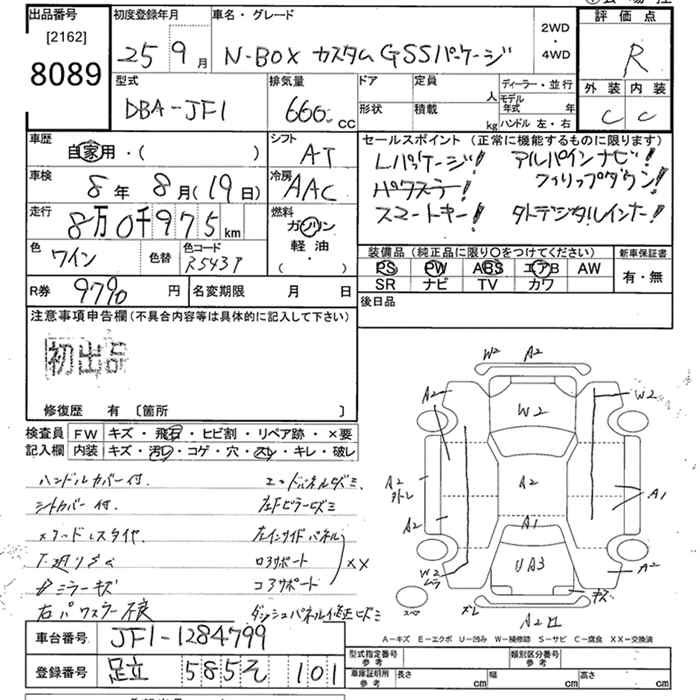 出品番号
[2162]
8089
初度登録年月
25 9 月
車名・グレード
N-BOX カスタム GSSパッケージ
2WD
・
4WD
評 価 点
R
外 装 内 装
C C
型式
DBA-JF1
排気量
660 cc
ドア
形状
定員
人
積載
kg
ディーラー・並行
モデル年式 年
ハンドル 左・右
車歴
自家用・( )
シフト
AT
車検
8 年 8 月(19日)
冷房
AAC
走行
8万0千975 km
燃料
ガソリン
軽 油
・
( )
色
ワイン
色替
色コード
R543P
R券 9790 円
名変期限 月 日
セールスポイント (正常に機能するものに限ります)
Lパッケージ! アルパインナビ!
パワスラー! フリップダウン!
スマートキー! タトデジタルインナー!
装備品(純正品に限り○をつけてください)
PS PW ABS エアB AW
SR ナビ TV カワ
新車保証書
有・無
後日品
注意事項申告欄(不具合内容等は具体的に記入して下さい)
初出品
修復歴 有 〔箇所 〕
検査員記入欄
FW キズ・飛石・ヒビ割・リペア跡・×要
内装 キズ・汚れ・コゲ・穴・スレ・キレ・破レ
ハンドルカバー付. エンドパネルヒズミ
シートカバー付. 左Fピラーヒズミ
左インサイドパネル
ロアサポート
XX
コアサポート
ミラーキズ
右パワスラー不良 ダッシュパネル修正ヒズミ
W2 A2
A2 W2 W2
A2 A2 A1
A2 A1
W2 ムラ UA3 A2
キズ
スペア ズレ A2
A-キズ E-エクボ U-凹み W-補修跡 S-サビ C-腐食 XX-交換済
車台番号 JF1-1284799
登録番号 足立 585 そ 101
型式指定番号 参考
類別区分番号 参考
車庫証明所 参考
長さ cm 幅 cm 高さ cm